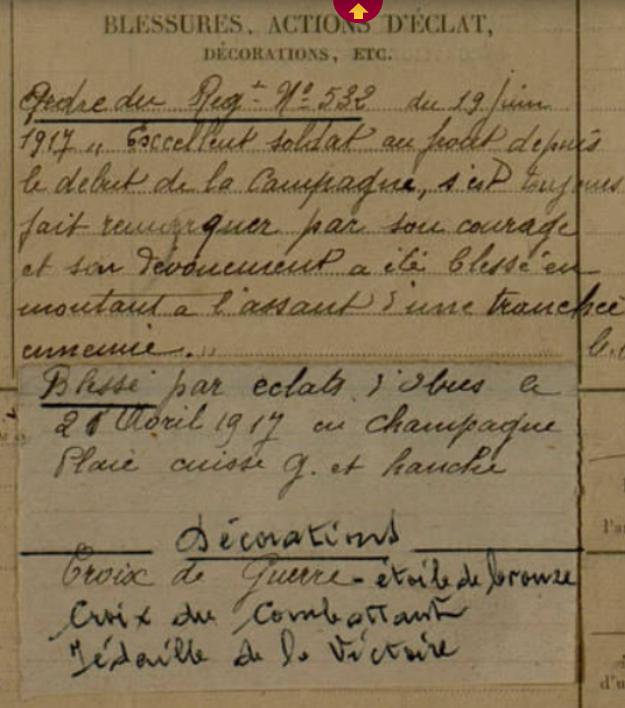 BLESSURES, ACTIONS D'ÉCLAT,
DÉCORATIONS, ETC.
Ordre du Regt Nº 532 du 19 juin
1917 „ Excellent soldat au front depuis
le debut de la Campagne, s'est toujours
fait remarquer par son courage
et son devouement a été blessé en
montant a l'assaut d'une tranchée
ennemie.„
Blessé par eclats d'obus le
Avril 1917 en champagne
Plaie cuisse g. et hanche
Décorations
Croix de Guerre - étoile de bronze
Croix du Combattant
Médaille de la Victoire